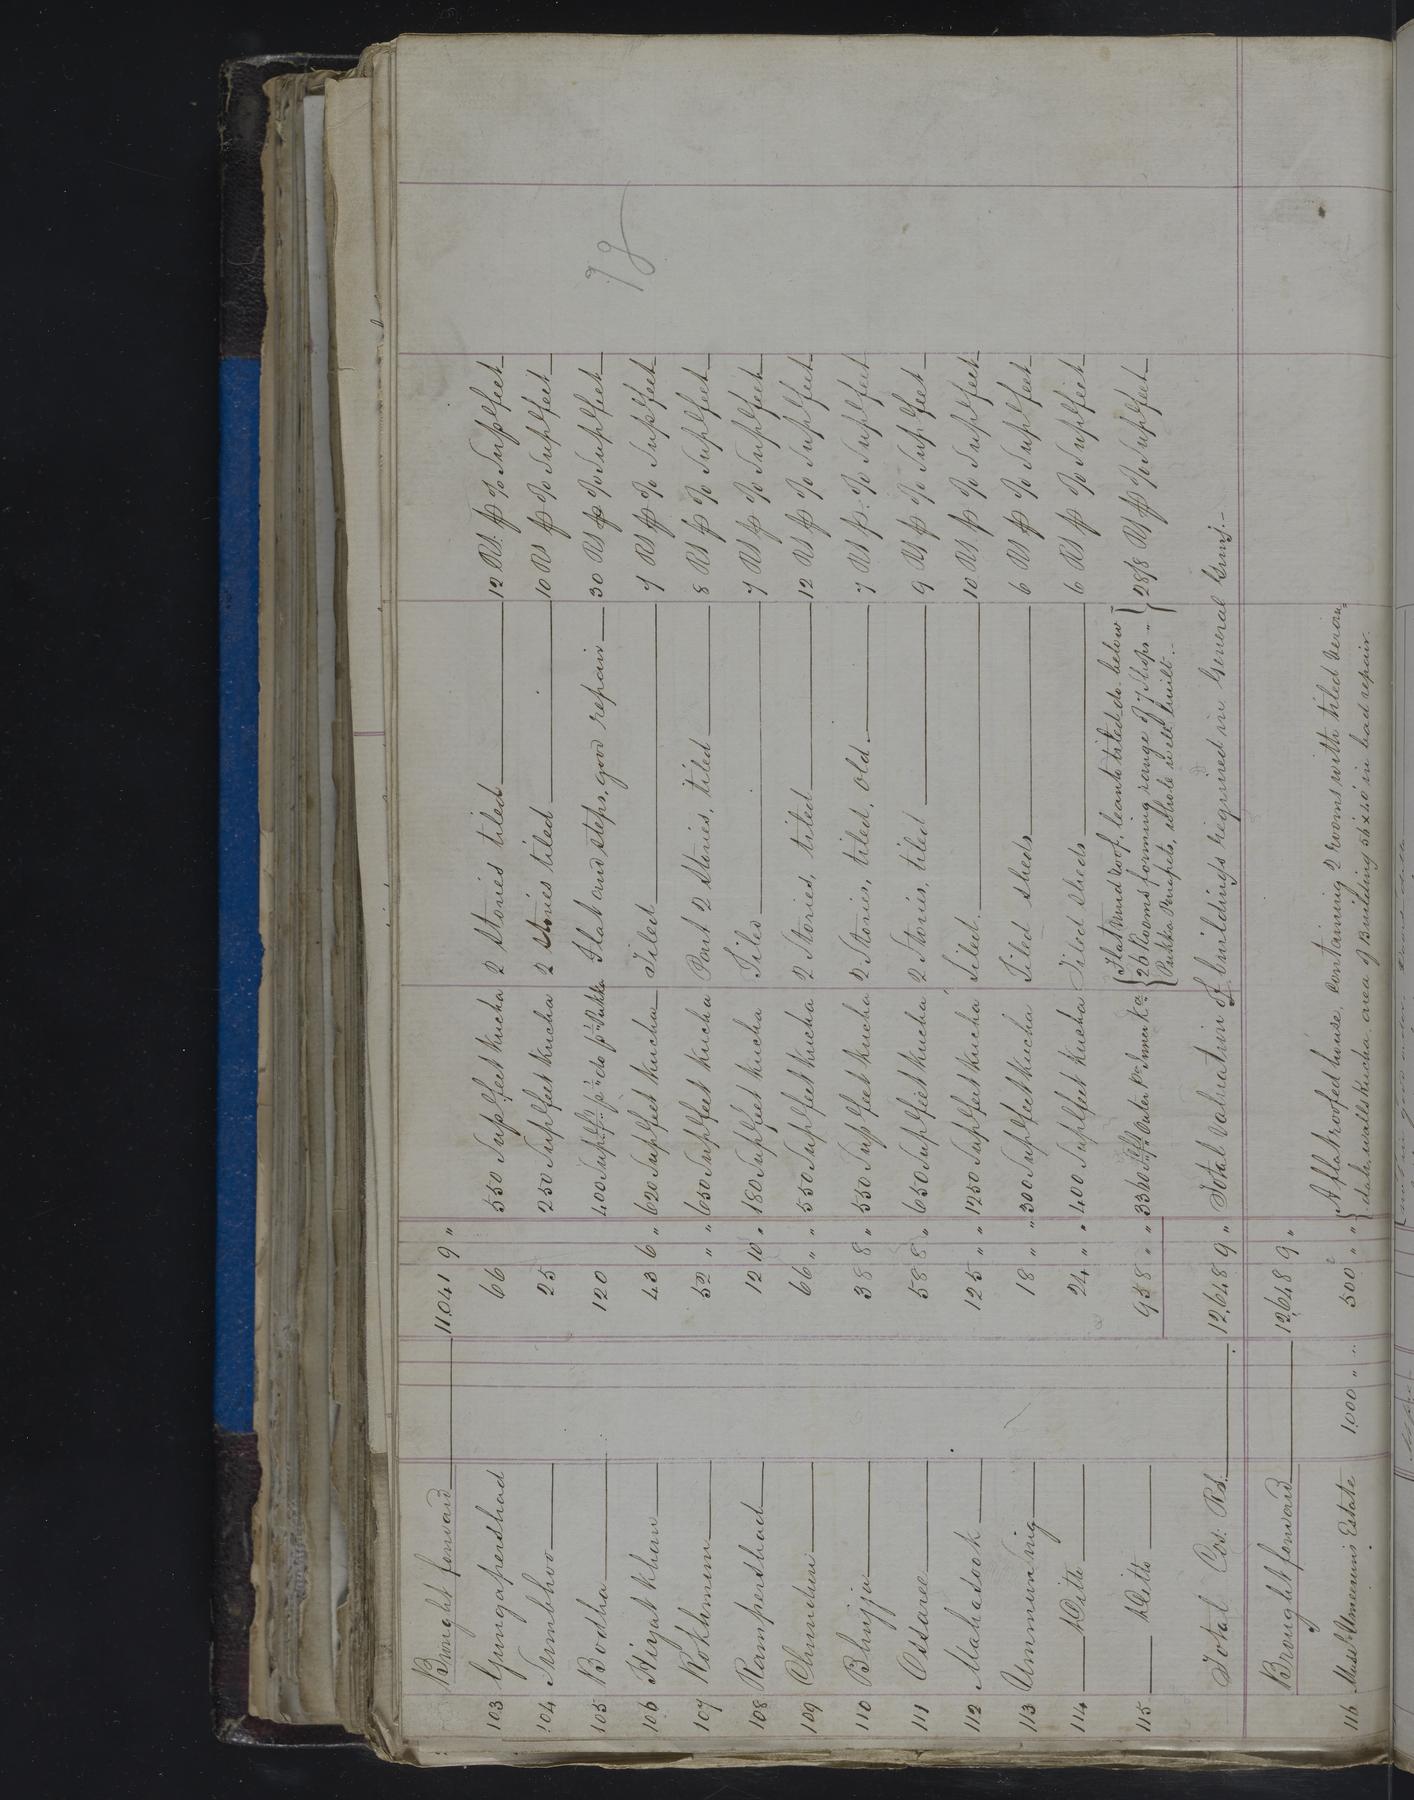 Brought forward 11,041 9 "
103 Gungapershad 66 550 Supl feet Kucha 2 Stories tiled 12 Rs. ⅌ % Supl feet
104 Sumbhoo 25 250 Supl feet Kucha 2 Stories tiled 10 Rs ⅌ % Supl feet
105 Bodha 120 400 Supl ft pt do pt Pukka Flat and steps, good repair 30 Rs ⅌ % Supl feet
106 Hyat Khan 43 6 " 620 Supl feet Kucha Tiled 7 Rs ⅌ % Supl feet
107 Rokhmun 52 " " 650 Supl feet Kucha Part 2 Stories, tiled 8 Rs ⅌ % Supl feet
108 Rampershad 12 10 " 180 Supl feet Kucha Tiled 7 Rs ⅌ % Supl feet
109 Chundun 66 " " 550 Supl feet Kucha 2 Stories, tiled 12 Rs ⅌ % Supl feet
110 Bhujju 38 8 " 550 Supl feet Kucha 2 Stories, tiled, old. 7 Rs ⅌ % Supl feet
111 Ossaree 58 8 " 650 Supl feet Kucha 2 Stories, tiled 9 Rs ⅌ % Supl feet
112 Mahasook 125 " " 1250 Supl feet Kucha Tiled 10 Rs. ⅌ % Supl feet
113 Ummun Sing 18 " " 300 Supl feet Kucha Tiled Sheds 6 Rs ⅌ % Supl feet
114 Ditto 24 " " 400 Supl feet Kucha Tiled Sheds 6 Rs ⅌ % Supl feet
115 Ditto 958 " " 3360 Supl ft Outer Pa Inner Ka Flat Mud roof, leanto tiled do. below
26 Rooms forming range of 7 Shops "
Pukka Parapets, whole well built.- 28/8 Rs ⅌ % Supl feet
Total Cos. Rs. 12,648 9 " Total Valuation of buildings required in General Gunj.-
Brought forward 12,648 9 "
116 Musst Umeerun's Estate 1000 " " 500 " " A flatroofed house, containing 2 rooms with tiled veran-
dah, walls Kucha area of Building 56 x 40 in bad repair.